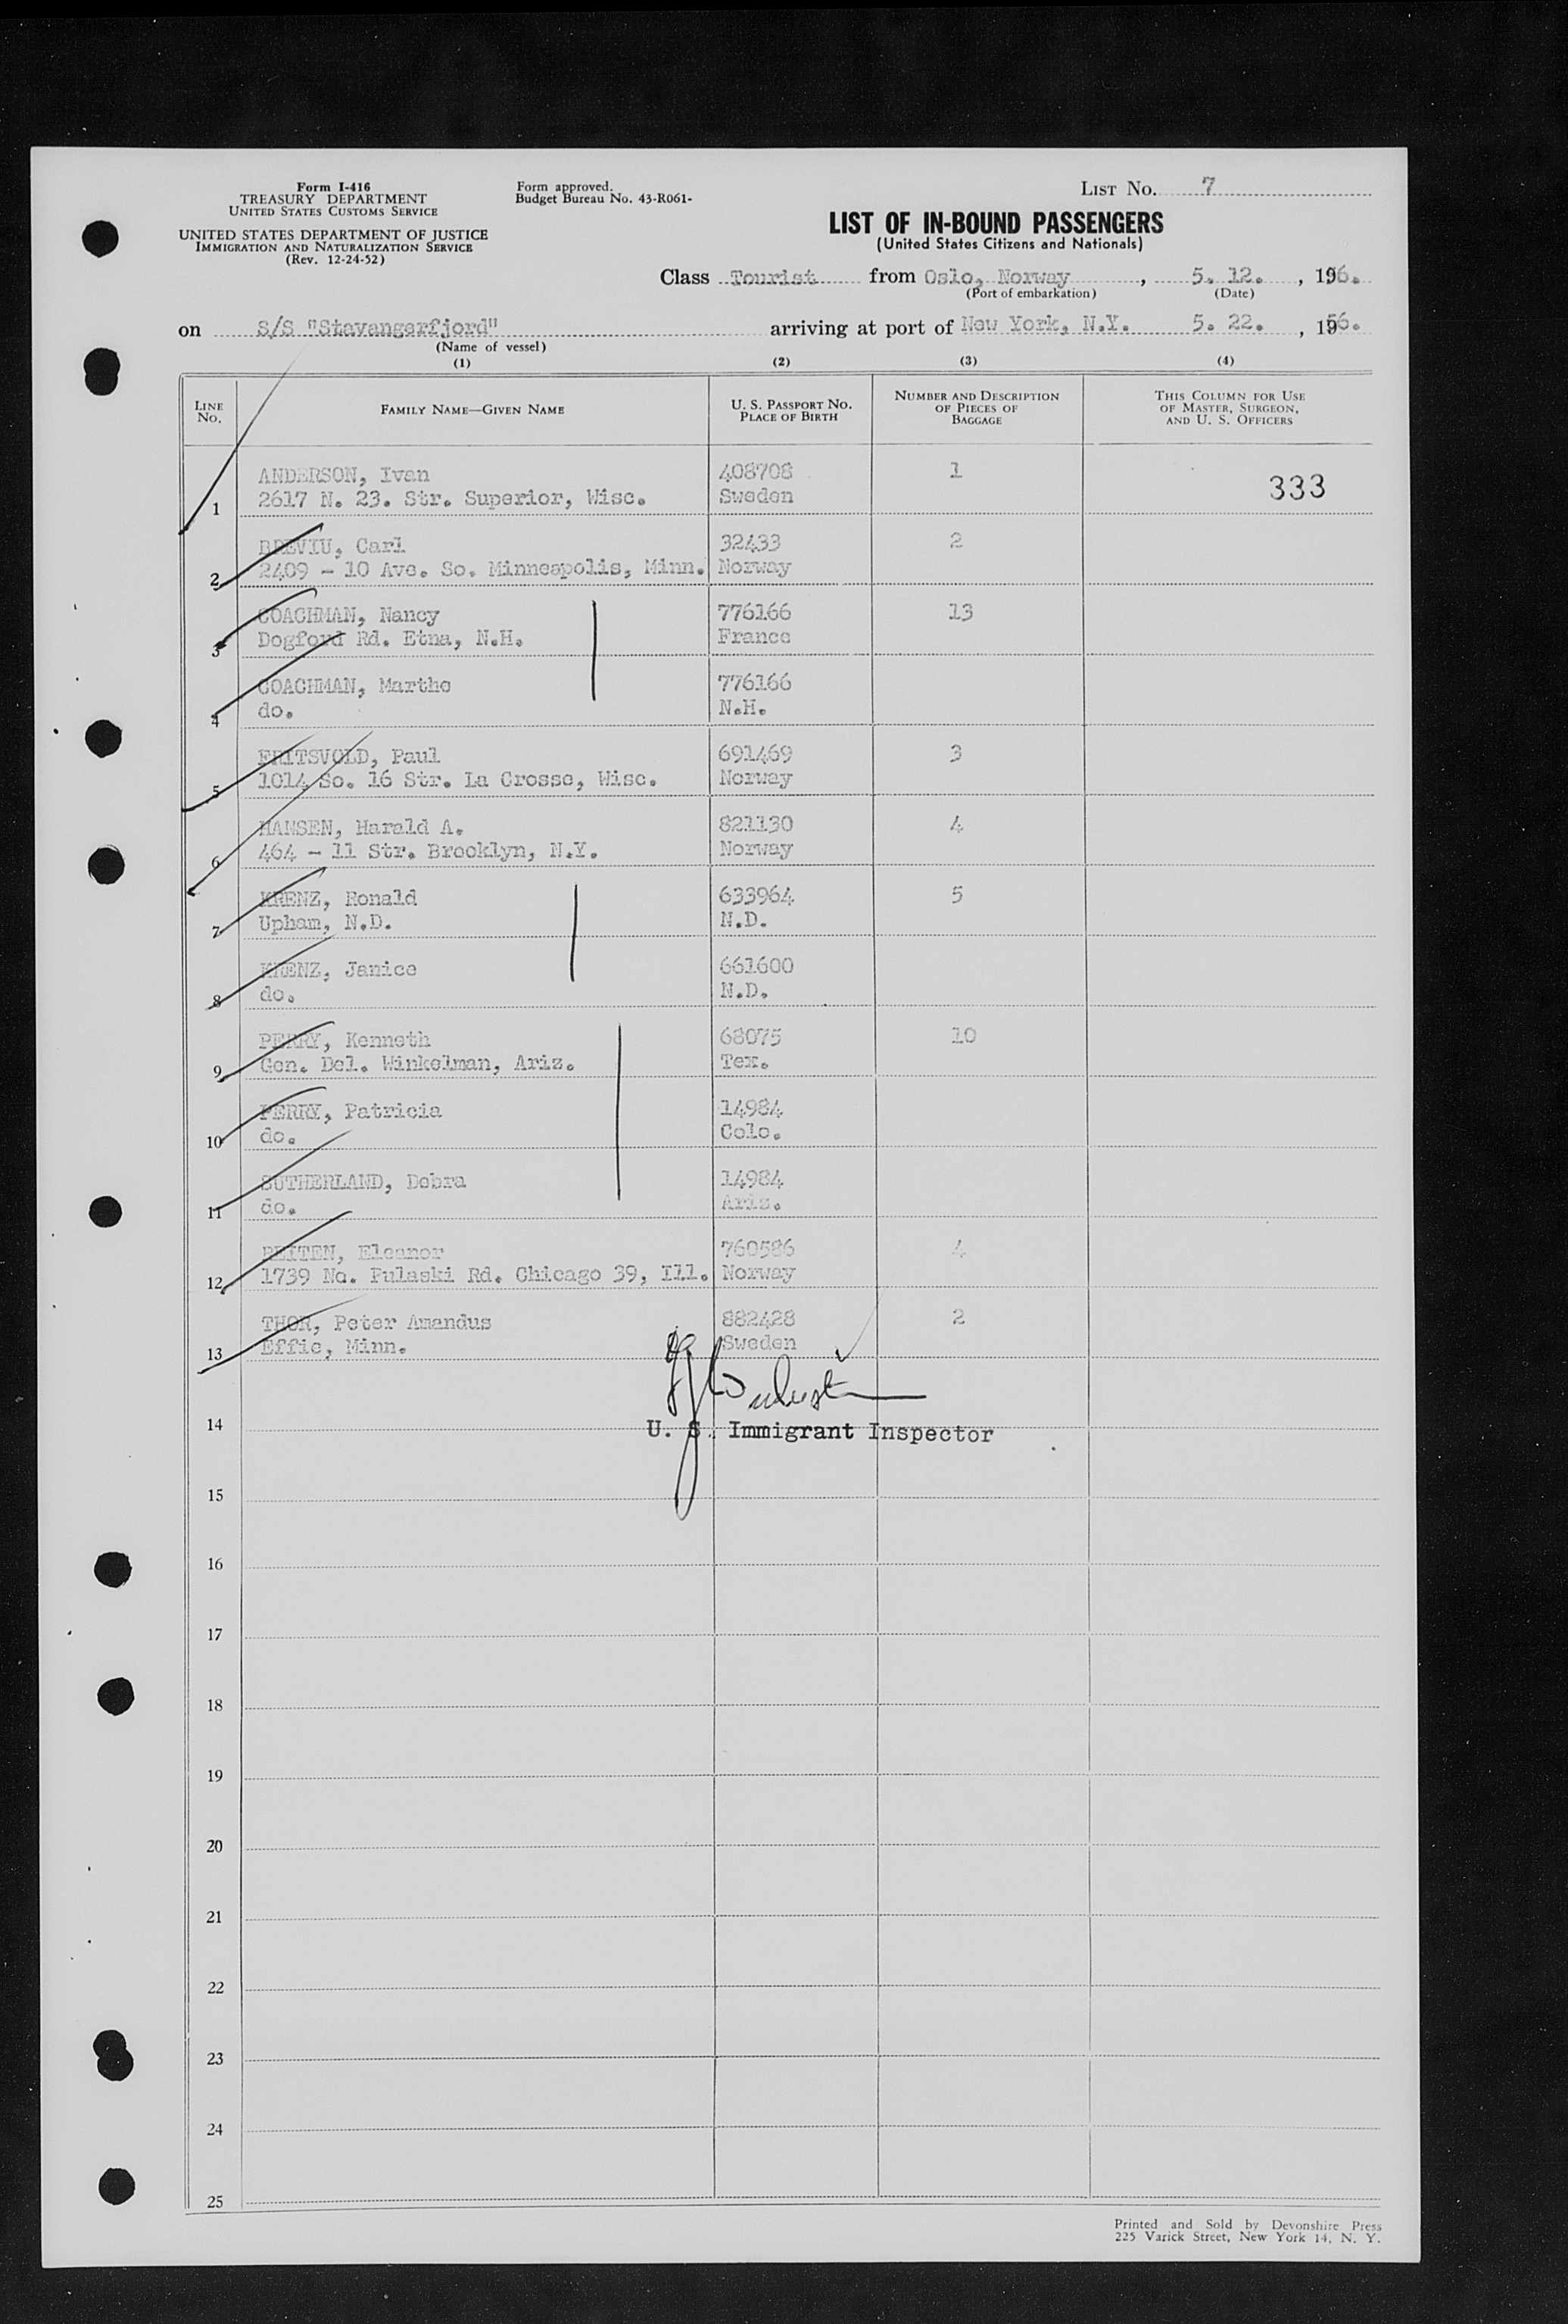 Form I-416
TREASURY DEPARTMENT
UNITED STATES CUSTOMS SERVICE
UNITED STATES DEPARTMENT OF JUSTICE
IMMIGRATION AND NATURALIZATION SERVICE
(Rev. 12-24-52)
Form approved.
Budget Bureau No. 43-R061-
LIST NO. 7
LIST OF IN-BOUND PASSENGERS
(United States Citizens and Nationals)
Class Tourist from Oslo, Norway, 5. 12., 1956.
(Port of embarkation) (Date)
on S/S "Stavangerfjord" arriving at port of New York, N.Y. 5. 22., 1956.
(Name of vessel)
(1) (2) (3) (4)
LINE NO. FAMILY NAME—GIVEN NAME U. S. PASSPORT NO. PLACE OF BIRTH NUMBER AND DESCRIPTION OF PIECES OF BAGGAGE THIS COLUMN FOR USE OF MASTER, SURGEON, AND U. S. OFFICERS
ANDERSON, Ivan 408708 1 333
1 2617 N. 23. Str. Superior, Wisc. Sweden
BREVIU, Carl 32433 2
2 2409 - 10 Ave. So. Minneapolis, Minn. Norway
COACHMAN, Nancy 776166 13
3 Dogford Rd. Etna, N.H. France
COACHMAN, Marthe 776166
4 do. N.H.
FRITSVOLD, Paul 691469 3
5 1014 So. 16 Str. La Crosse, Wisc. Norway
HANSEN, Harald A. 821130 4
6 464 - 11 Str. Brooklyn, N.Y. Norway
KRENZ, Ronald 633964 5
7 Upham, N.D. N.D.
KRENZ, Janice 661600
8 do. N.D.
PERRY, Kenneth 68075 10
9 Gen. Del. Winkelman, Ariz. Tex.
PERRY, Patricia 14984
10 do. Colo.
SUTHERLAND, Debra 14984
11 do. Ariz.
REITEN, Eleanor 760586 4
12 1739 No. Pulaski Rd. Chicago 39, Ill. Norway
THOR, Peter Amandus 882428 2
13 Effie, Minn. Sweden
14 U. S. Immigrant Inspector
15
16
17
18
19
20
21
22
23
24
25
Printed and Sold by Devonshire Press
225 Varick Street, New York 14, N. Y.